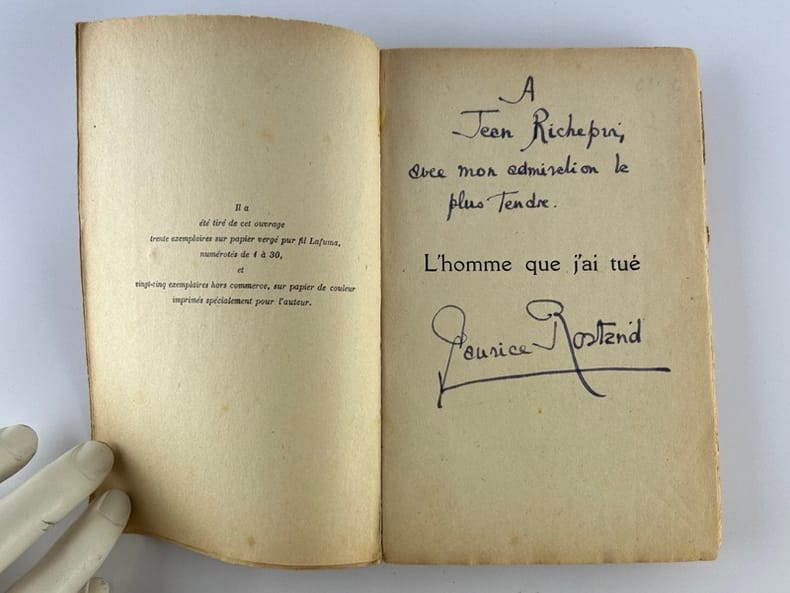 Il a
été tiré de cet ouvrage
trente exemplaires sur papier vergé pur fil Lafuma,
numérotés de 1 à 30,
et
vingt-cinq exemplaires hors commerce, sur papier de couleur
imprimés spécialement pour l'auteur.
A
Jean Richepin,
avec mon admiration la
plus Tendre.
L'homme que j'ai tué
Maurice Rostand